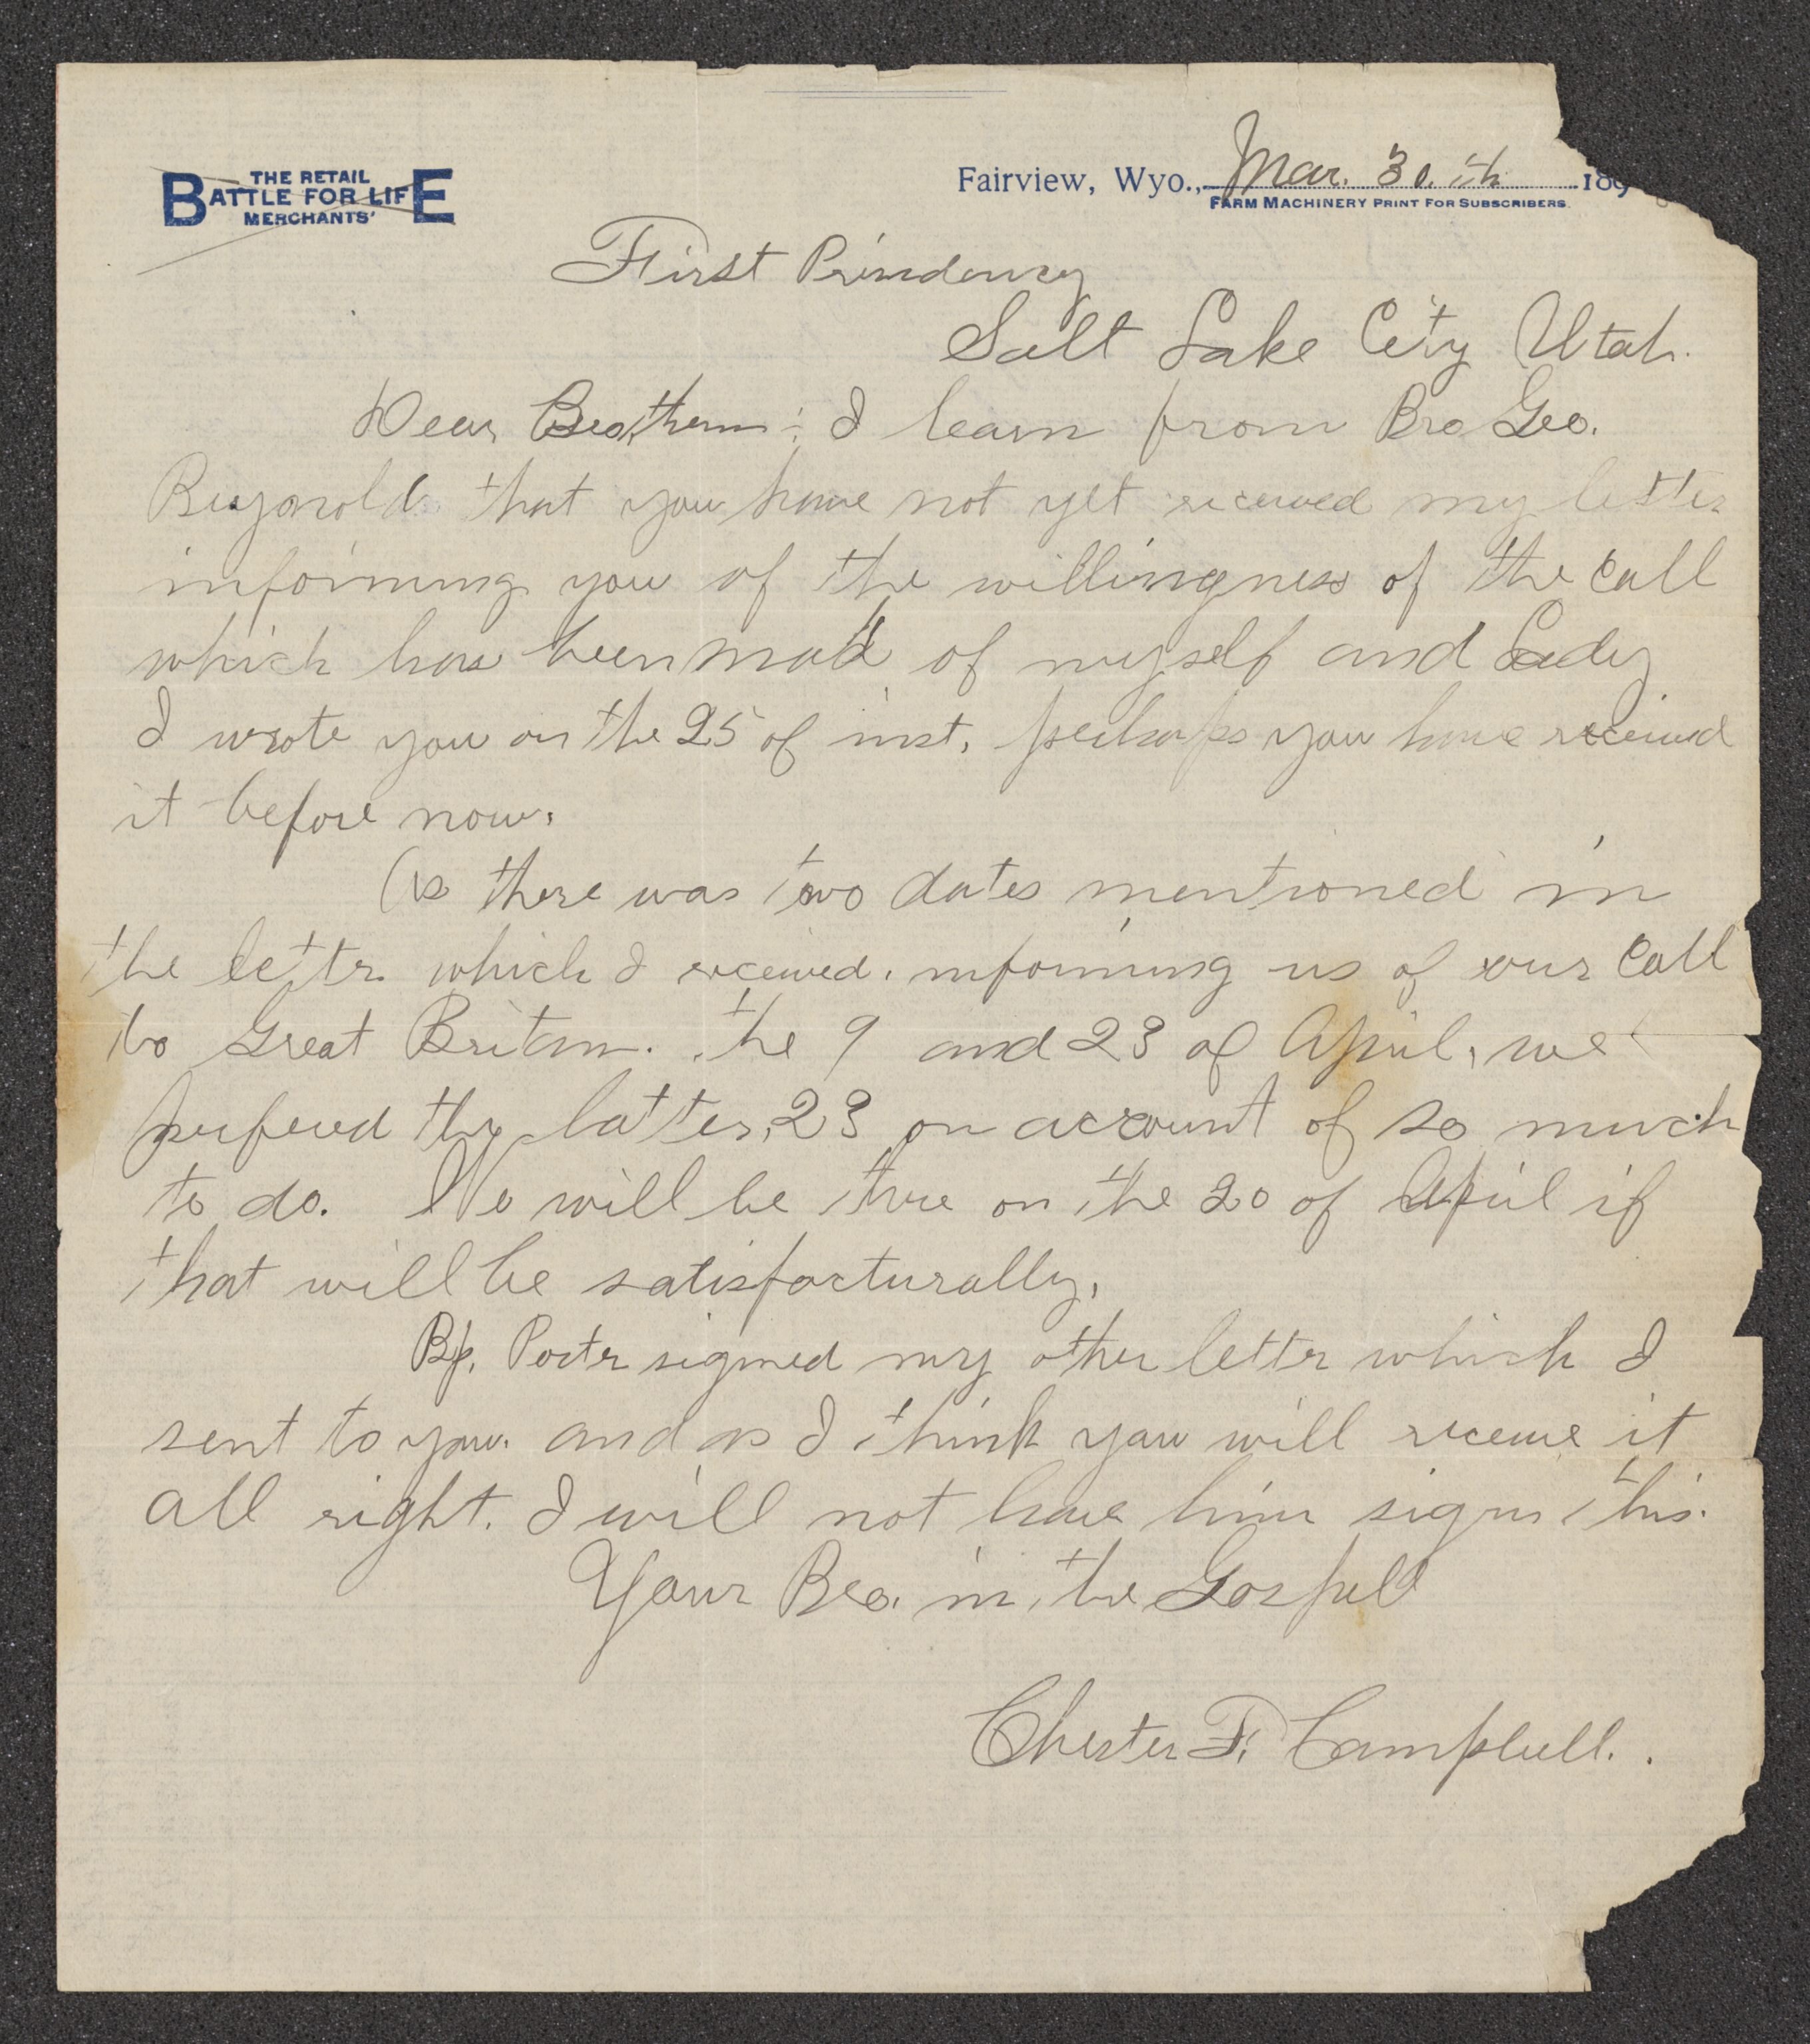 THE RETAIL
BATTLE FOR LIFE
MERCHANTS'
Fairview, Wyo., Mar. 30.th 189
FARM MACHINERY PRINT FOR SUBSCRIBERS.
First
Salt Lake City Utah.
Dear Brothern: I learn from Bro Geo.
Reynolds that you have not yet received my letter
informing you of the willingness of the call
which has been made of myself and Lady
I wrote you on the 25 of inst. perhaps you have received
it before now.
As there was two dates mentioned in
the letter which I received. informing us of our Call
to Great Britan. the 9 and 23 of April, we
prefered the latter, 23 on account of so much
to do. We will be thre on the 20 of April if
that will be satisfacturally.
Bp. Porter signed my other letter which I
sent to you. and as I think you will receive it
all right. I will not have him sign this.
Your Bro. in the Gospell
Chester F. Campbell.